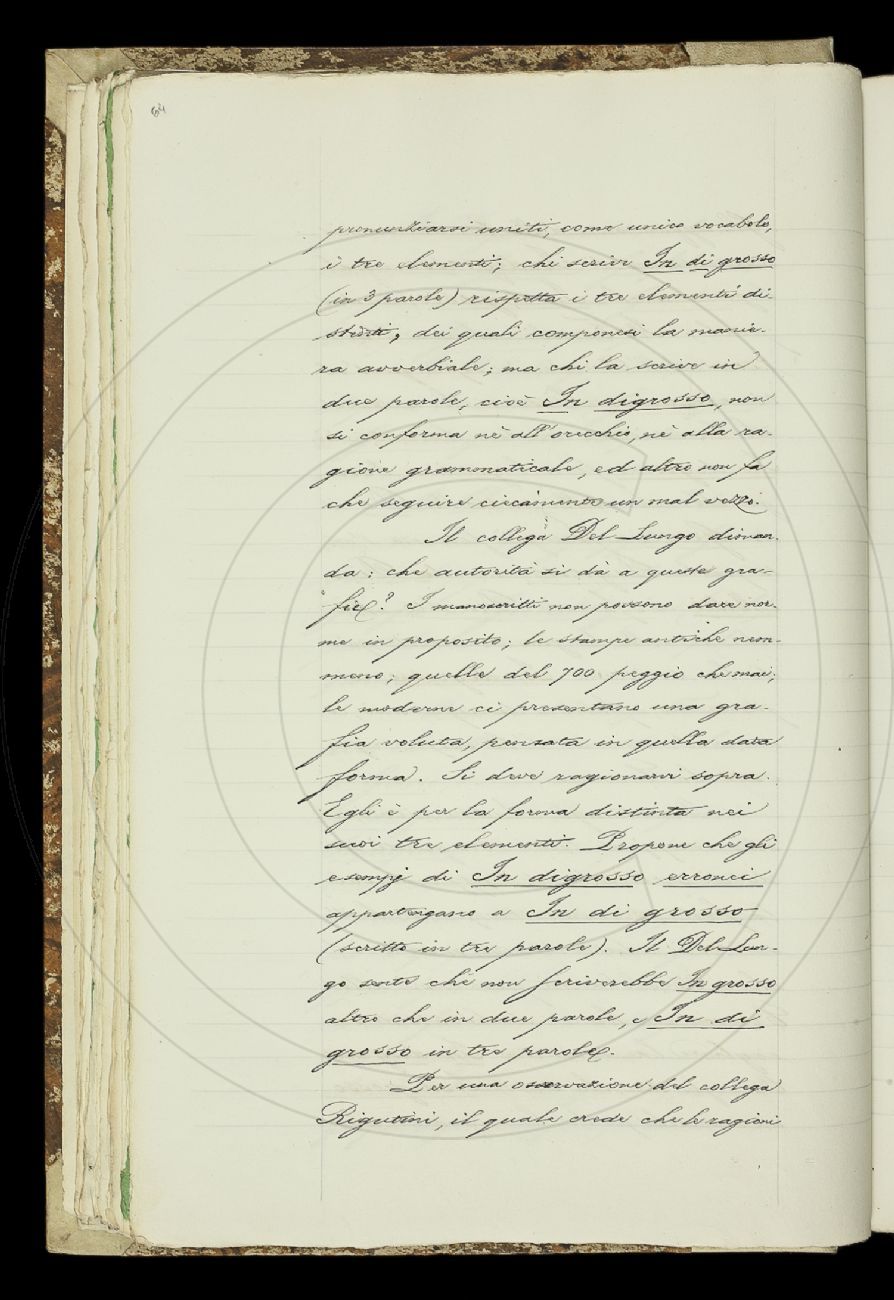 64
pronunziarsi uniti, come unico vocabolo,
i tre elementi; chi scrive In di grosso
(in 3 parole) rispetta i tre elementi di-
stinti, dei quali componesi la manie-
ra avverbiale; ma chi la scrive in
due parole, cioè In digrosso, non
si conforma nè all'orecchio, nè alla ra-
gione grammaticale, ed altro non fa
che seguire ciecamente un mal vezzo.
Il collega Del Lungo diman-
da: che autorità si dà a queste gra-
fie? I manoscritti non possono dare nor-
me in proposito; le stampe antiche nem-
meno; quelle del 700 peggio che mai;
le moderne ci presentano una gra-
fia voluta, pensata in quella data
forma. Si deve ragionarvi sopra.
Egli è per la forma distinta nei
suoi tre elementi. Propone che gli
esempj di In digrosso erronei
appartengano a In di grosso
(scritto in tre parole). Il Del Lun-
go sente che non scriverebbe In grosso
altro che in due parole, e In di
grosso in tre parole.
Per una osservazione del collega
Rigutini, il quale crede che le ragioni